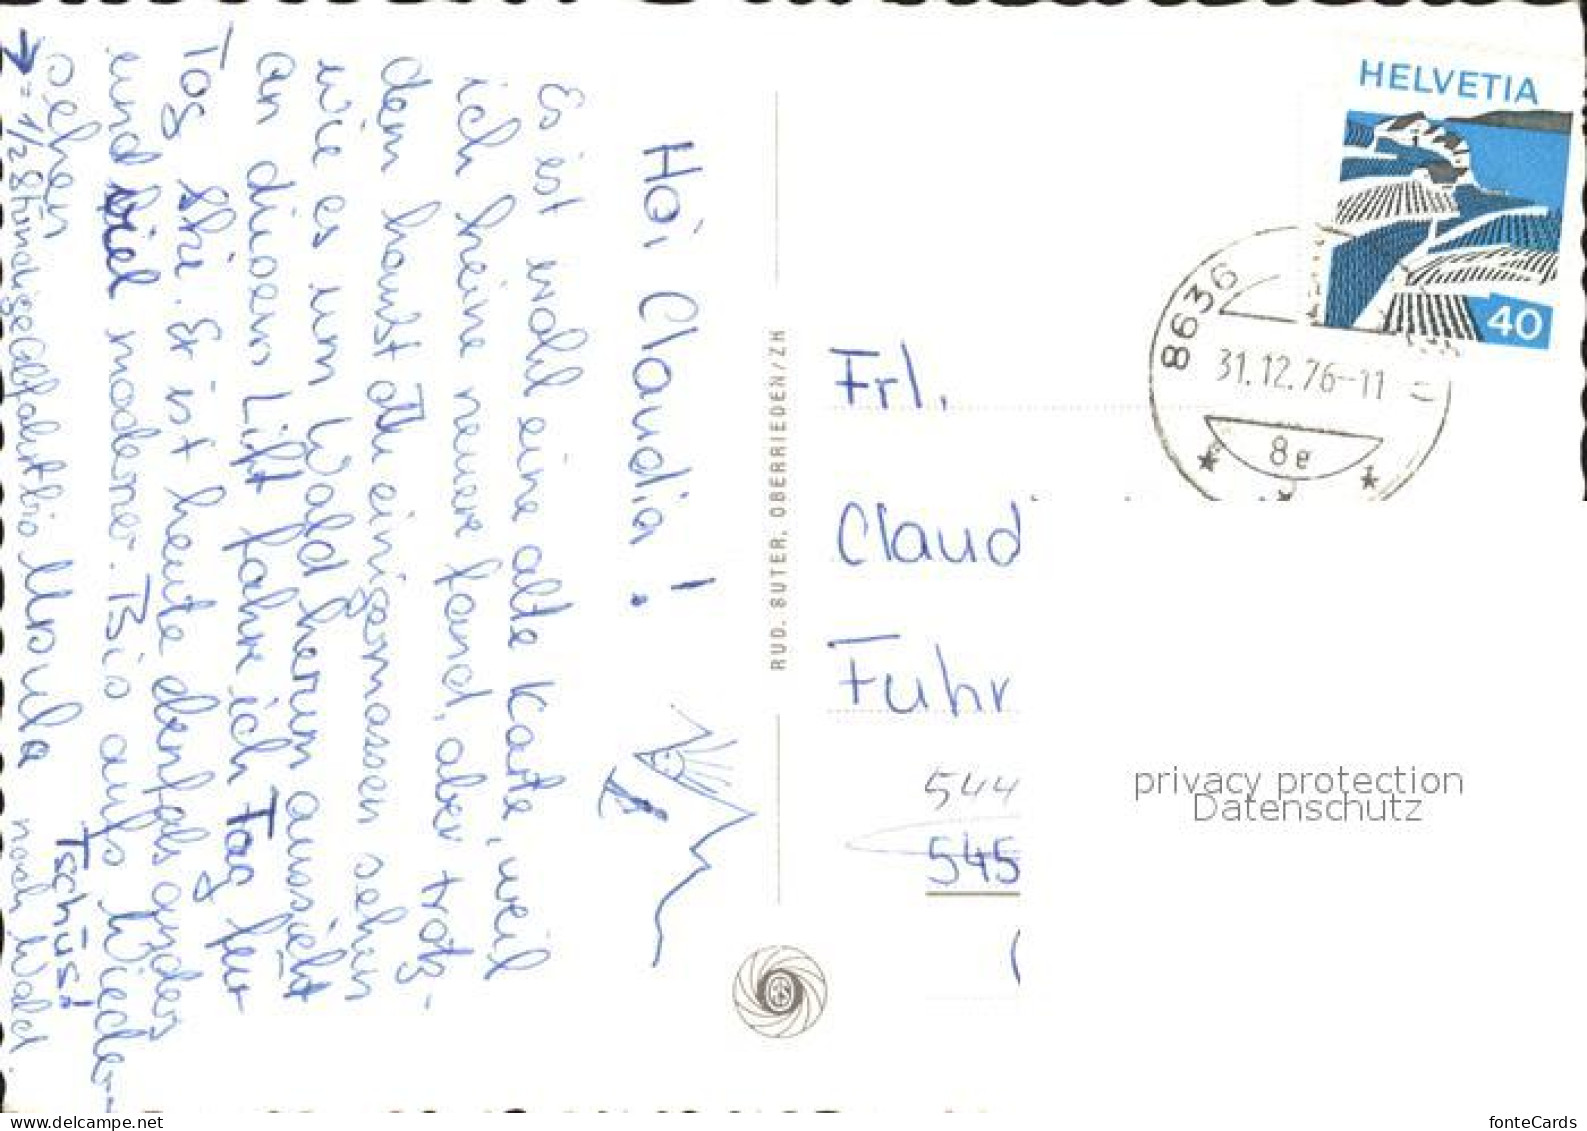 Hoi Claudia!
Es ist wohl eine alte Karte, weil
ich keine neuere fand, aber trotz-
dem kanst du einigermassen sehen
wie es um Wald herum aussieht
an diesem Lift fahre ich Tag für
Tag Ski. Er ist heute ebenfals anders
und viel moderner. Bis aufs Wieder-
sehen
Tschüs!
Ursula
→ = 1/2 Stündige Liftfahrt bis nach Wald.
RUD. SUTER, OBERRIEDEN/ZH
HELVETIA
40
8636
31.12.76-11
8e
Frl.
Claud
Fuhr
544
545
privacy protection
Datenschutz
my-next-collection.com
fonteCards